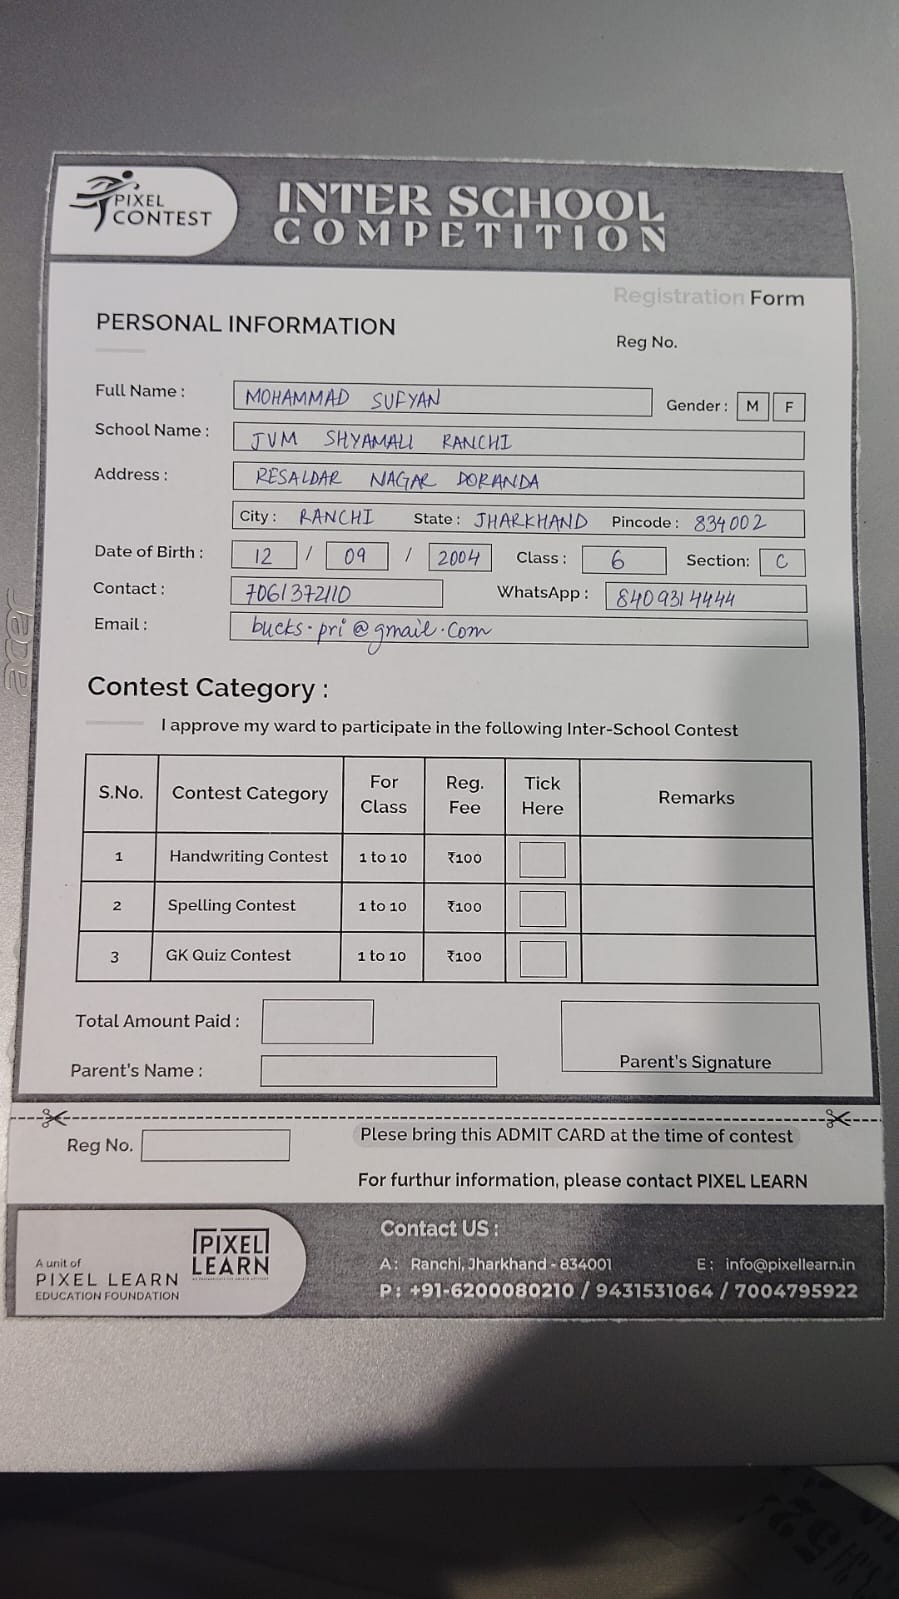 PIXEL
CONTEST
INTER SCHOOL
COMPETITION
Registration Form
PERSONAL INFORMATION
Reg No.
Full Name : MOHAMMAD SUFYAN Gender : M F
School Name : JVM SHYAMALI RANCHI
Address : RESALDAR NAGAR DORANDA
City : RANCHI State : JHARKHAND Pincode : 834002
Date of Birth : 12 / 09 / 2004 Class : 6 Section: C
Contact : 7061372110 WhatsApp : 8409314444
Email : bucks.pri@gmail.com
Contest Category :
I approve my ward to participate in the following Inter-School Contest
S.No. Contest Category For Class Reg. Fee Tick Here Remarks
1 Handwriting Contest 1 to 10 ₹100
2 Spelling Contest 1 to 10 ₹100
3 GK Quiz Contest 1 to 10 ₹100
Total Amount Paid :
Parent's Signature
Parent's Name :
Reg No. Plese bring this ADMIT CARD at the time of contest
For furthur information, please contact PIXEL LEARN
A unit of
PIXEL LEARN
EDUCATION FOUNDATION
PIXEL
LEARN
Contact US :
A : Ranchi, Jharkhand - 834001 E : info@pixellearn.in
P : +91-6200080210 / 9431531064 / 7004795922